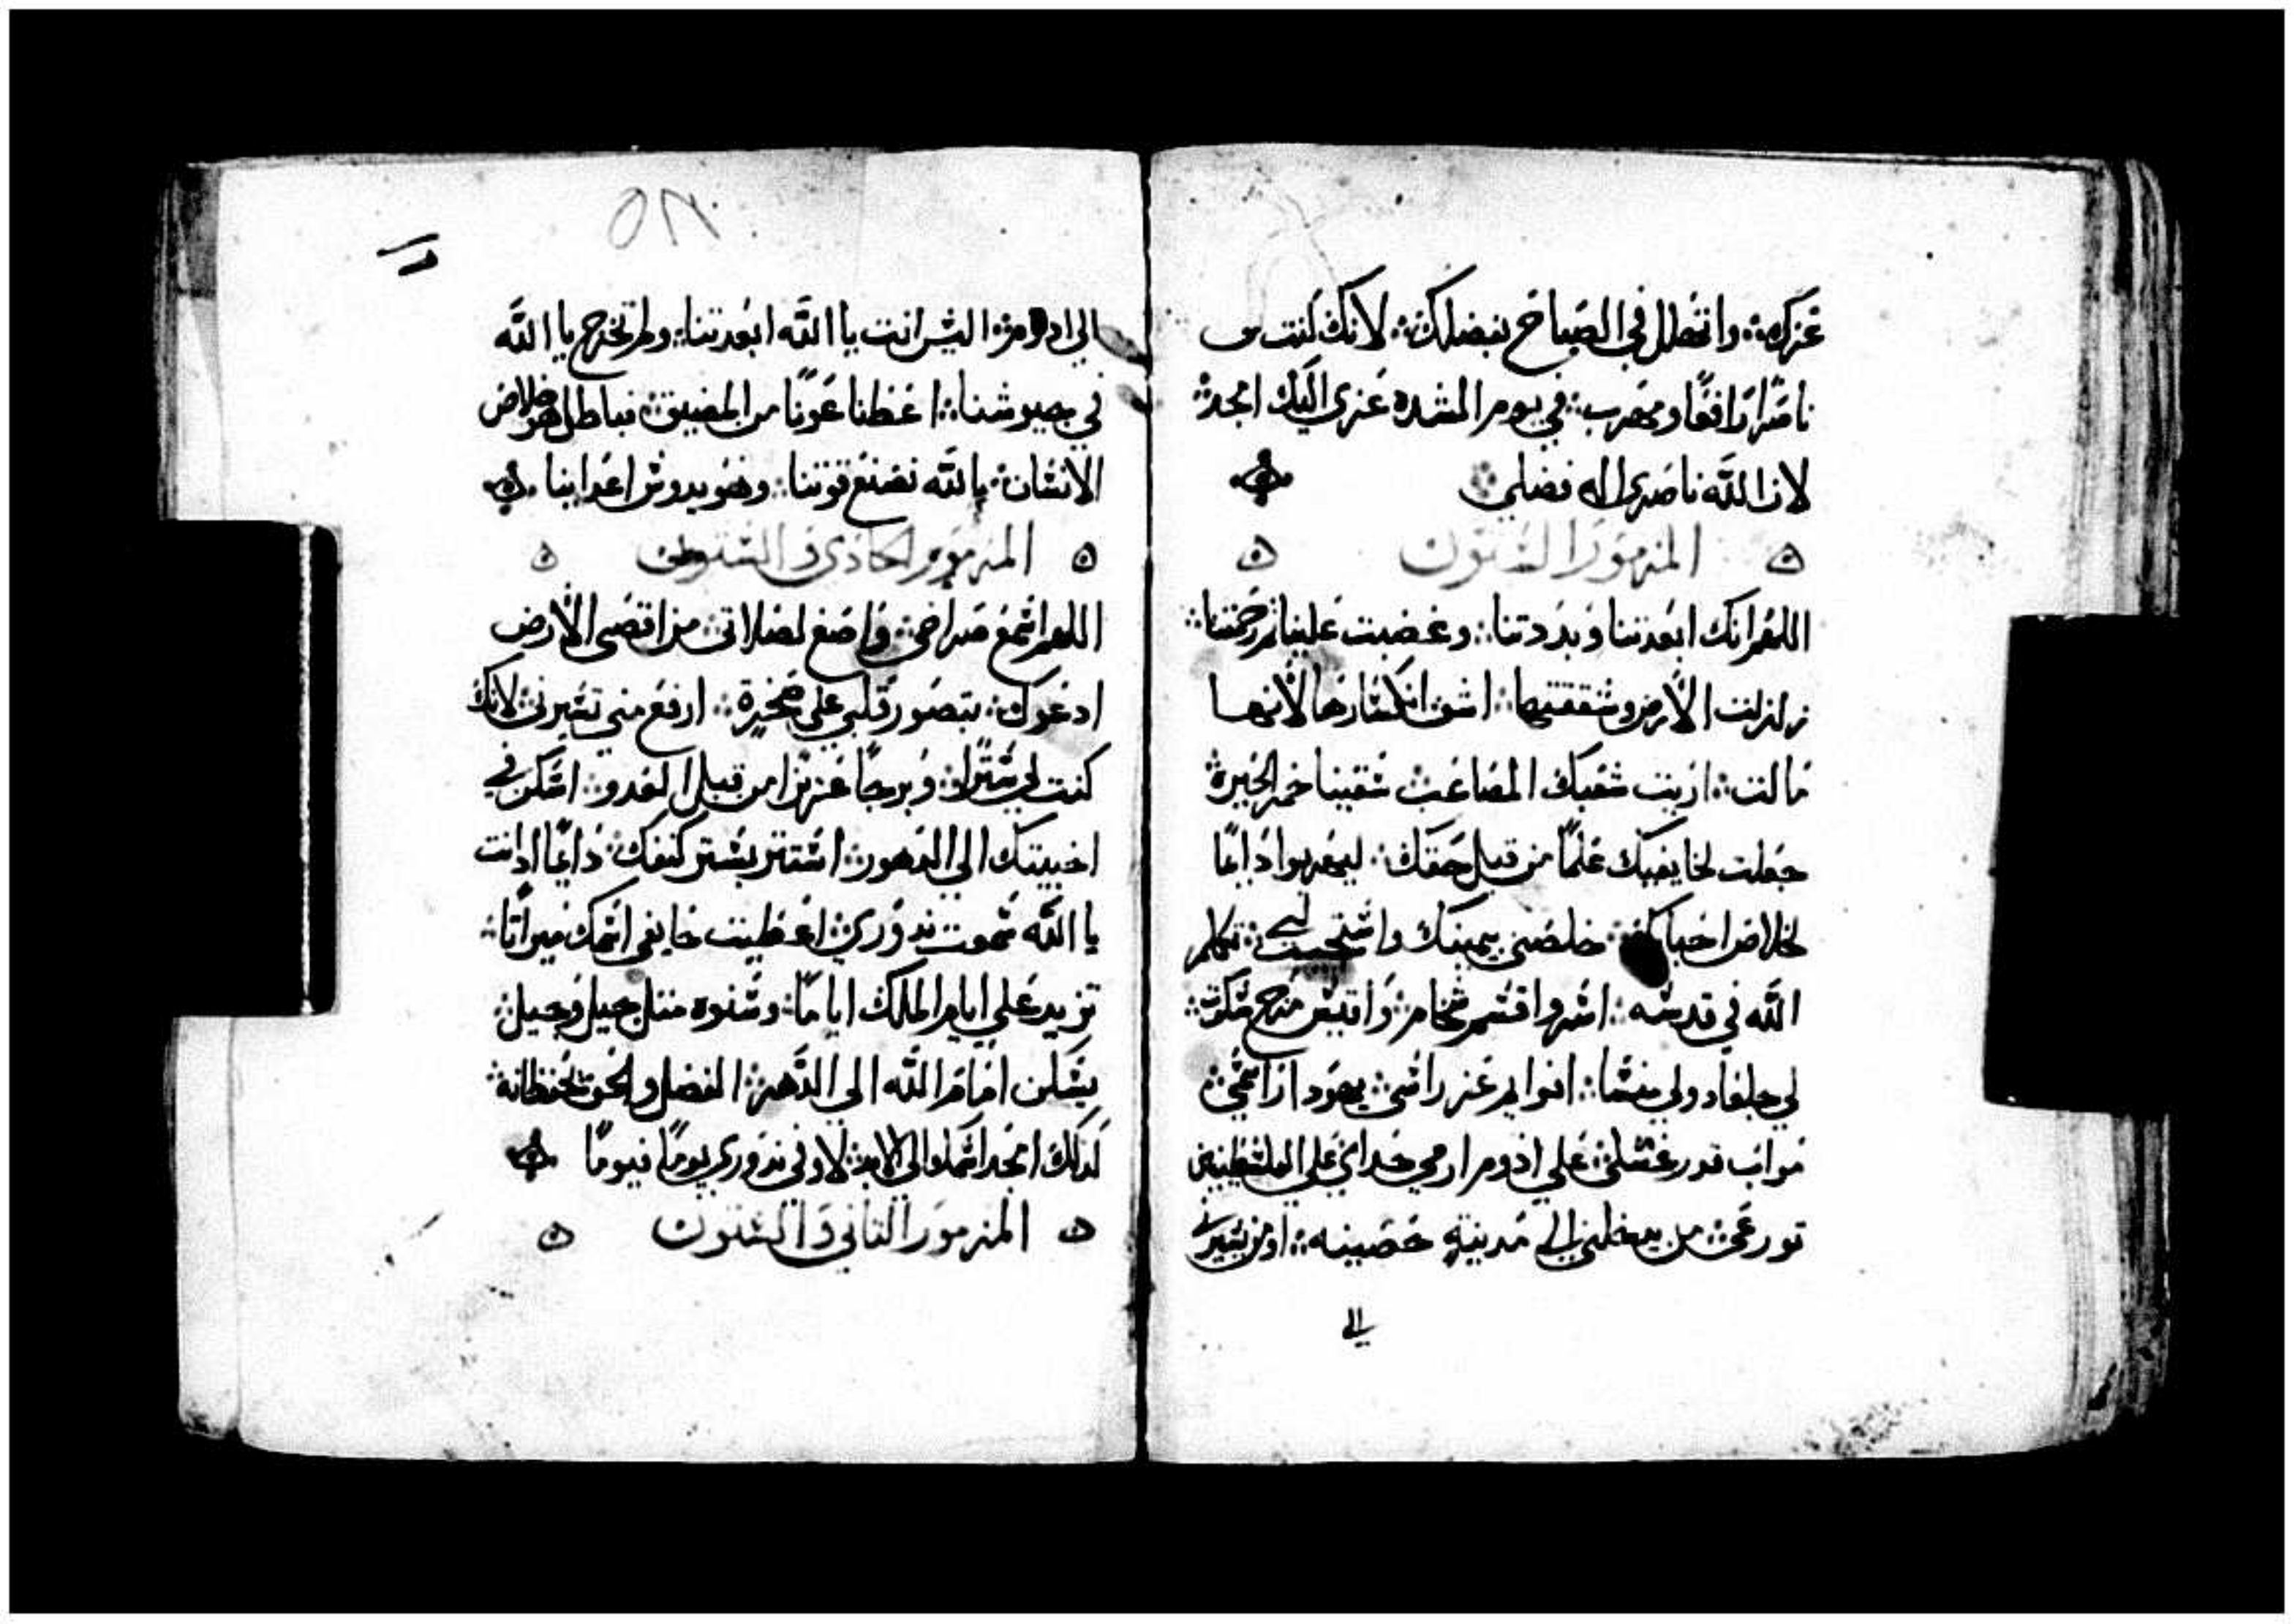 عزك؞ واتهلل في الصباح بفضلك؞ لانك كنت لي
ناصرا رافقا ومهرب؞ في يوم الشده عزي اليك امجد؞
لان الله ناصري اله فضلي؞
المزمور الستون
اللهم انك ابعدتنا وبددتنا؞ وغضبت علينا ثم رحمتنا؞
زلزلت الارض وشققتها؞ اشف انكسارها لانها
مالت؞ اريت شعبك المصاعب؞ سقيتنا خمر الحيرة؞
جعلت لخايفيك علما من قبل حقك؞ ليهربوا دايما
لخلاص احباك؞ خلصني بيمينك واستجيب لي؞ تكلم
الله في قدسه؞ اسر واقسم شخام؞ واقيس مرج سكوت؞
لي جلعاد ولي منسا؞ افرايم عز راسي؞ يهودا راسمي؞
مواب قدر غسلي؞ علي ادوم ارمي حداي علي الفلسطين
تورعي؞ من يدخلني الي مدينة حصينه؞ او من يسيرني
الي
٦١
الي ادوم؞ اليس انت يا الله ابعدتنا؞ ولم تخرج يا الله
في جيوشنا؞ اعطنا عونا من المضيق؞ فباطل هو خلاص
الانسان؞ بالله نصنع قوتنا؞ وهو يدوس اعداينا
المزمور الحادي والستون
اللهم اسمع صراخي؞ واصغ لصلاتي؞ من اقصى الارض
ادعوك؞ بتصور قلبي علي صخرة؞ ارفع مني تسيرني؞ لانك
كنت لي سترا؞ وبرجا عزيزا من قبل العدو؞ اسكن في
اخبيتك الي الدهور؞ استتر بستر كنفك؞ دايما اد انت
يا الله سمعت ندوري؞ اعطيت خايفي اسمك ميراثا؞
تزيد علي ايام الملك اياما؞ وسنوه متل جيل وجيل؞
يسكن امام الله الي الدهر؞ الفضل والحق يحفظانه؞
كدلك امجد اسمك الي الابد؞ لاوفي ندوري يوما فيوما
المزمور التاني والستون